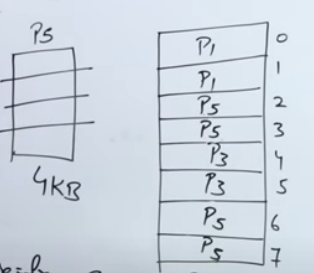 P5
4KB
P1 0
P1 1
P5 2
P5 3
P3 4
P3 5
P5 6
P5 7